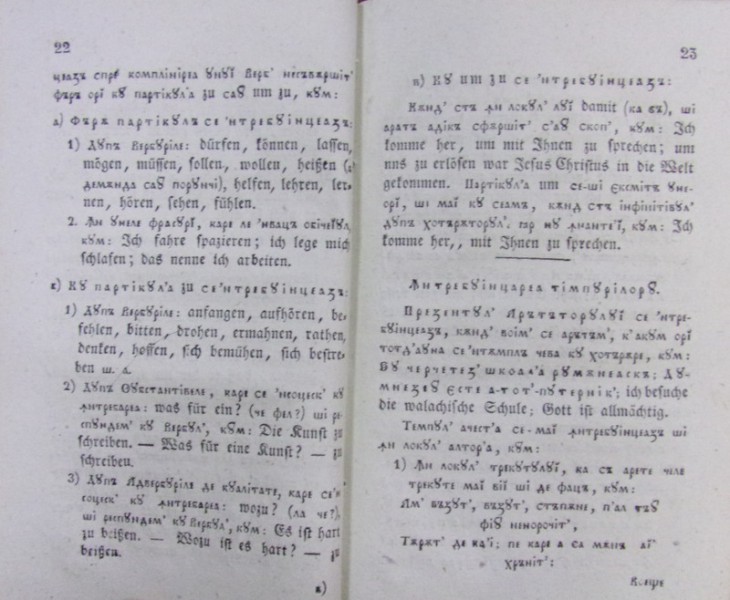 22
цеазъ спре комплінірea ꙋнꙋї Верб' несъвършіт'
фъръ орї кꙋ партікꙋл'а zu саꙋ um zu, кꙋм:
а) Фъръ партікꙋлъ се 'нтребꙋінцеазъ:
1) Дꙋпъ Вербꙋріле: dürfen, können, lassen,
mögen, müssen, sollen, wollen, heißen (а
демѫнда саꙋ порꙋнчі), helfen, lehren, ler-
nen, hören, sehen, fühlen.
2. Ꙟн ꙋнеле фрасꙋрї, каре ле 'нвацъ обічеїꙋл,
кꙋм: Ich fahre spazieren; ich lege mich
schlafen; das nenne ich arbeiten.
в) Кꙋ партікꙋл'а zu се 'нтребꙋінцеазъ:
1) Дꙋпъ Вербꙋріле: anfangen, aufhören, be-
fehlen, bitten, drohen, ermahnen, rathen,
denken, hoffen, sich bemühen, sich bestre-
ben ш. а.
2) Дꙋпъ Сꙋбстантівеле, каре се 'неоцеск' кꙋ
ꙟнтребареа: was für ein? (че фел?) ші ре-
спꙋндем' кꙋ Вербꙋл', кꙋм: Die Kunst zu
schreiben. — Was für eine Kunst? — zu
schreiben.
3) Дꙋпъ Адвербꙋріле де кꙋалітате, каре се'н-
соцеск' кꙋ ꙟнтребареа: wozu? (ла че?),
ші респꙋндем' кꙋ Вербꙋл', кꙋм: Es ist hart
zu beißen. — Wozu ist es hart? — zu
beißen.
в)
23
в) Кꙋ um zu се 'нтребꙋінцеазъ:
Кѫнд' стъ ꙟн локꙋл' лꙋї damit (ка въ), ші
аратъ адікъ сфършіт' с'аꙋ скоп', кꙋм: Ich
komme her, um mit Ihnen zu sprechen; um
uns zu erlösen war Jesus Christus in die Welt
gekommen. Партікꙋл'а um се-ші ексмітъ ꙋне-
орї, ші маї кꙋ сеамъ, кѫнд стъ інфінітівꙋл'
дꙋпъ хотърѫторꙋл', іар нꙋ ꙟнантеї, кꙋм: Ich
komme her,, mit Ihnen zu sprechen.
Ꙟнтребꙋінцареа тімпꙋрілорꙋ.
Презентꙋл' Арътъторꙋлꙋї се 'нтре-
бꙋінцеазъ, кѫнд' воім' се арътъм', к'акꙋм орї
тотд'аꙋна се 'нтѫмплъ чева кꙋ хотърѫре, кꙋм:
Еꙋ черчетез' школа'а рꙋмѫнеаскъ; Дꙋ-
мнезеꙋ єсте а-тот'-пꙋтернік'; ich besuche
die walachische Schule; Gott ist allmächtig.
Темпꙋл' ачест'а се-маї ꙟнтребꙋінцеазъ ші
ꙟн локꙋл' алтор'а, кꙋм:
1) Ꙟн локꙋл' трекꙋтꙋлꙋї, ка съ арете челе
трекꙋте маї вії ші де фацъ, кꙋм:
Ам' възꙋт', възꙋт', стъпѫне, п'ал тъꙋ
фіꙋ ненорочіт',
Търѫт' де каї; пе каре а са мѫнъ аї'
хръніт':
Воеще